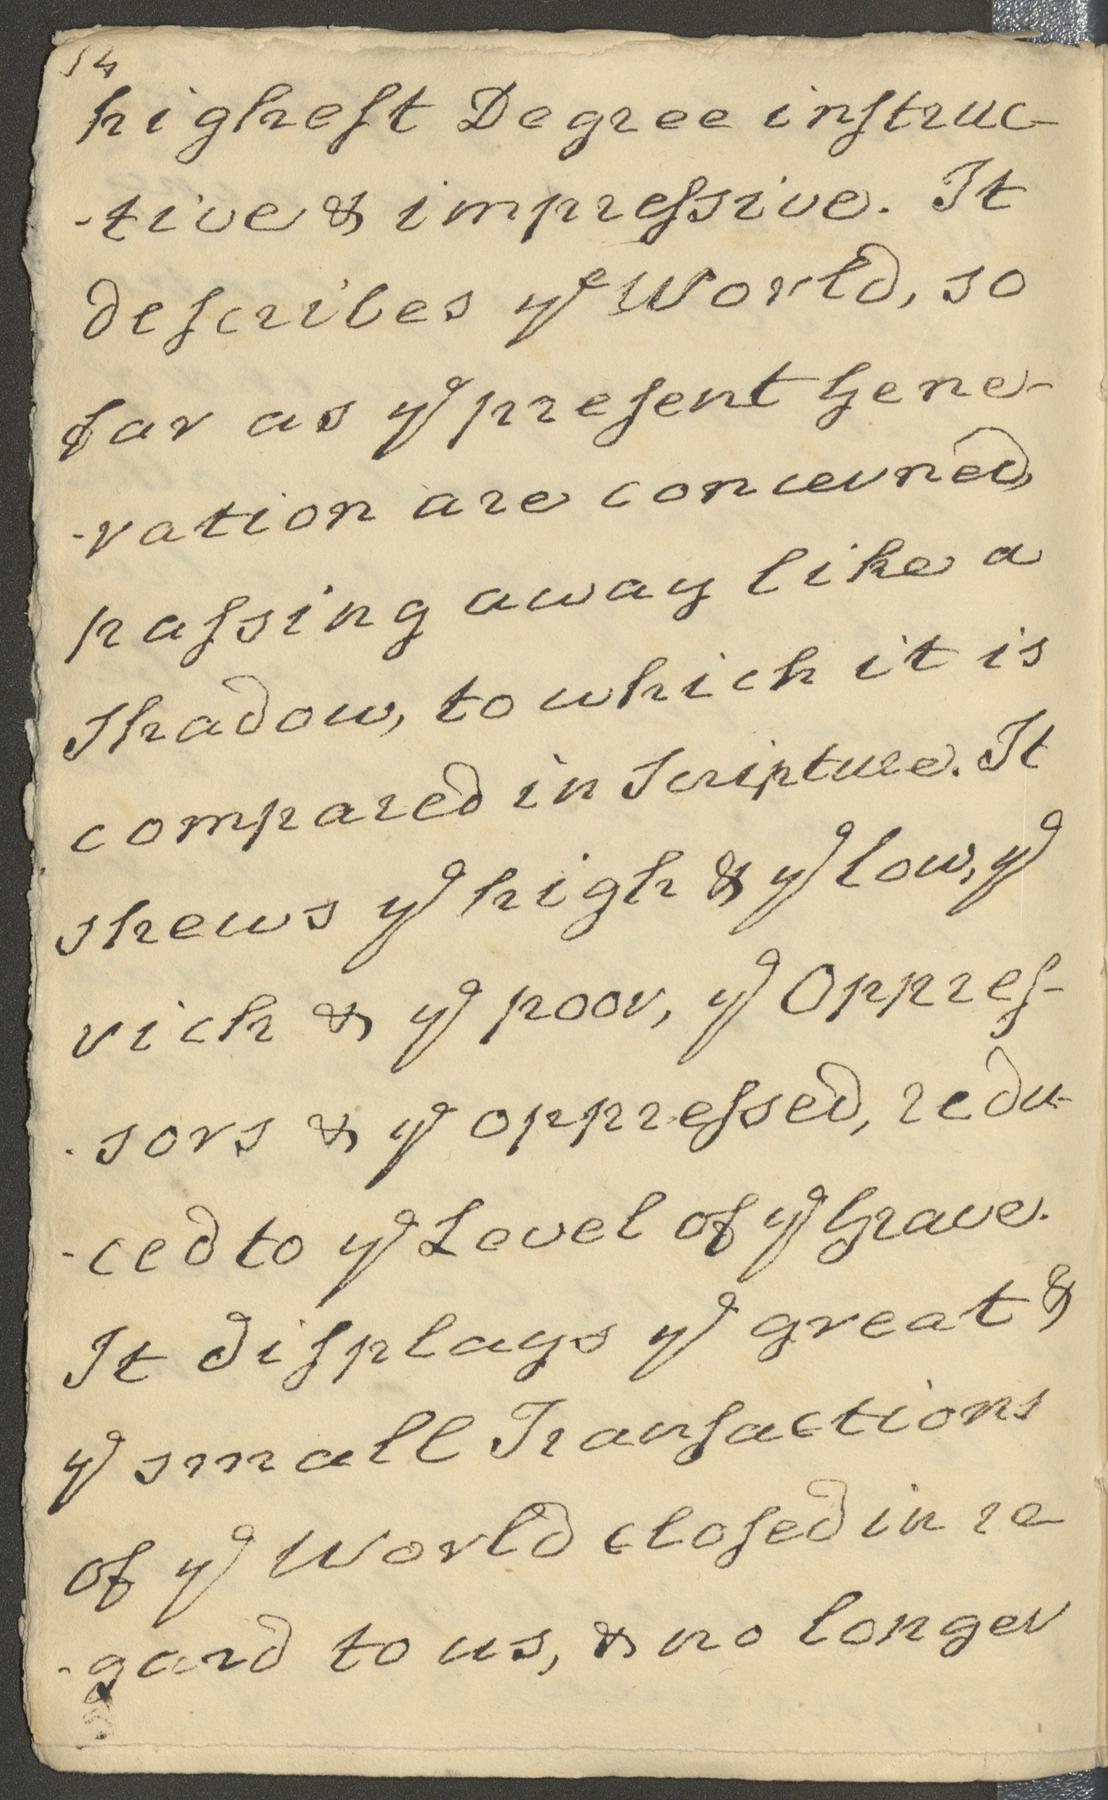 14
higheſt Degree inſtruc-
-tive & impreſsive. It
deſcribes yᵉ World, so
far as yᵉ preſent Gene-
-ration are concerned,
paſsing away like a
Shadow, to which it is
compared in Scripture. It
shews yᵉ high & yᵉ low, yᵉ
rich & yᵉ poor, yᵉ Oppreſ-
-sors & yᵉ oppreſsed, redu-
-ced to yᵉ Level of yᵉ Grave.
It diſplays yᵉ great &
yᵉ small Tranſactions
of yᵉ World cloſed in re
-gard to us, & no longer